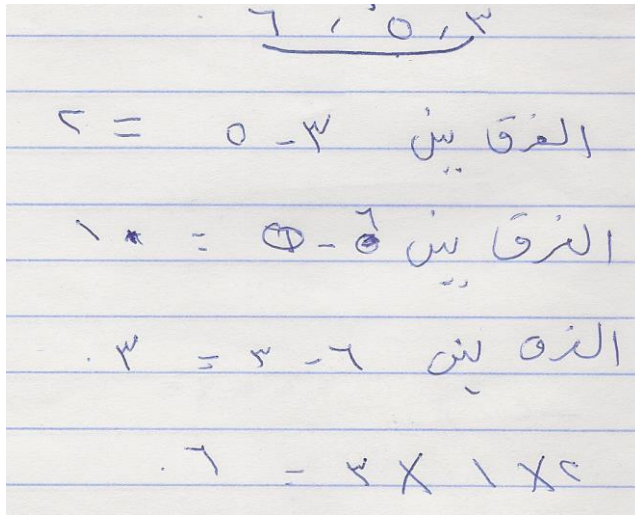 ٣ ، ٥ ، ٦
الفرق بين ٣ - ٥ = ٢
الفرق بين ٦ - ٥ = ١
الفرق بين ٦ - ٣ = ٣ .
٢ X ١ X ٣ = ٦ .